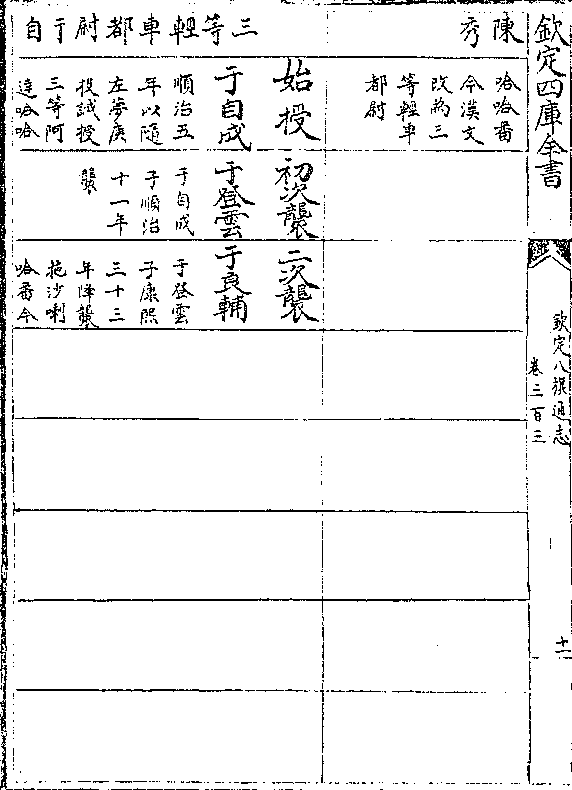 欽定四庫全書
欽定八旗通志
卷三百三
十一
陳
秀
哈哈番
今漢文
改為三
等輕車
都尉
三等輕車都尉于自
始授
于自成
順治五
年以隨
左夢庚
投誠授
三等阿
達哈哈
初次襲
于登雲
于自成
子順治
十一年
襲
二次襲
于良輔
于登雲
子康熙
三十三
年降襲
拖沙喇
哈番今